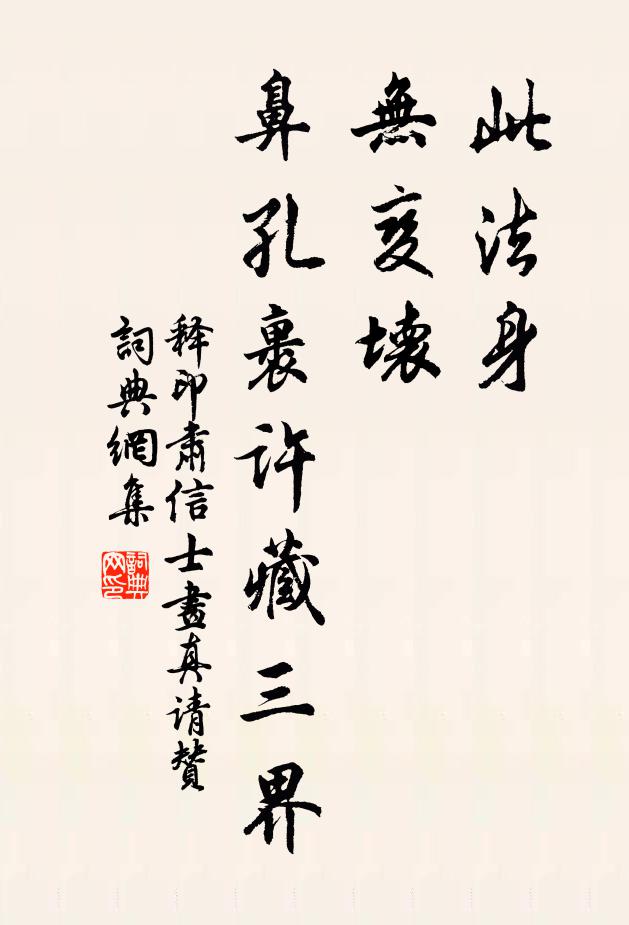 此法身
無变壞
鼻孔裹許藏三界
释印肅信士畫真请贊
詞典網集
詞典
网印